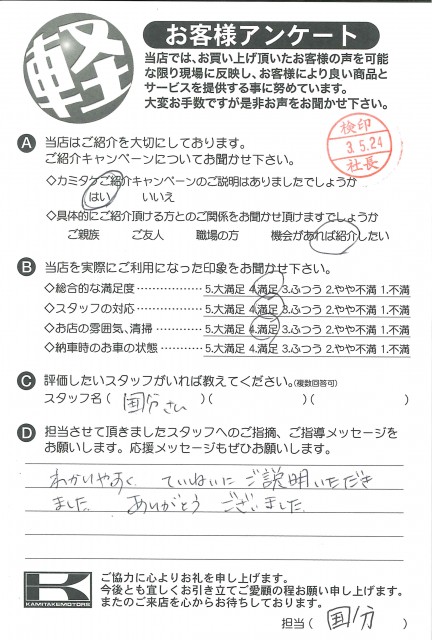 軽
お客様アンケート
当店では、お買い上げ頂いたお客様の声を可能
な限り現場に反映し、お客様により良い商品と
サービスを提供する事に努めています。
大変お手数ですが是非お声をお聞かせ下さい。
検印
3.5.24
社長
A 当店はご紹介を大切にしております。
ご紹介キャンペーンについてお聞かせ下さい。
◇カミタケご紹介キャンペーンのご説明はありましたでしょうか
はい いいえ
◇具体的にご紹介頂ける方とのご関係をお聞かせ頂けますでしょうか
ご親族 ご友人 職場の方 機会があれば紹介したい
B 当店を実際にご利用になった印象をお聞かせ下さい。
◇総合的な満足度 ‥‥‥‥‥‥ 5.大満足 4.満足 3.ふつう 2.やや不満 1.不満
◇スタッフの対応 ‥‥‥‥‥‥ 5.大満足 4.満足 3.ふつう 2.やや不満 1.不満
◇お店の雰囲気、清掃 ‥‥‥‥ 5.大満足 4.満足 3.ふつう 2.やや不満 1.不満
◇納車時のお車の状態 ‥‥‥‥ 5.大満足 4.満足 3.ふつう 2.やや不満 1.不満
C 評価したいスタッフがいれば教えてください。(複数回答可)
スタッフ名( 国分さん )( )( )
D 担当させて頂きましたスタッフへのご指摘、ご指導メッセージを
お願いします。応援メッセージもぜひお願いします。
わかりやすく ていねいに ご説明いただき
ました ありがとう ございました
K
KAMITAKEMOTORS
ご協力に心よりお礼を申し上げます。
今後とも宜しくお引き立てご愛顧の程お願い申し上げます。
またのご来店を心からお待ちしております。
担当( 国分 )